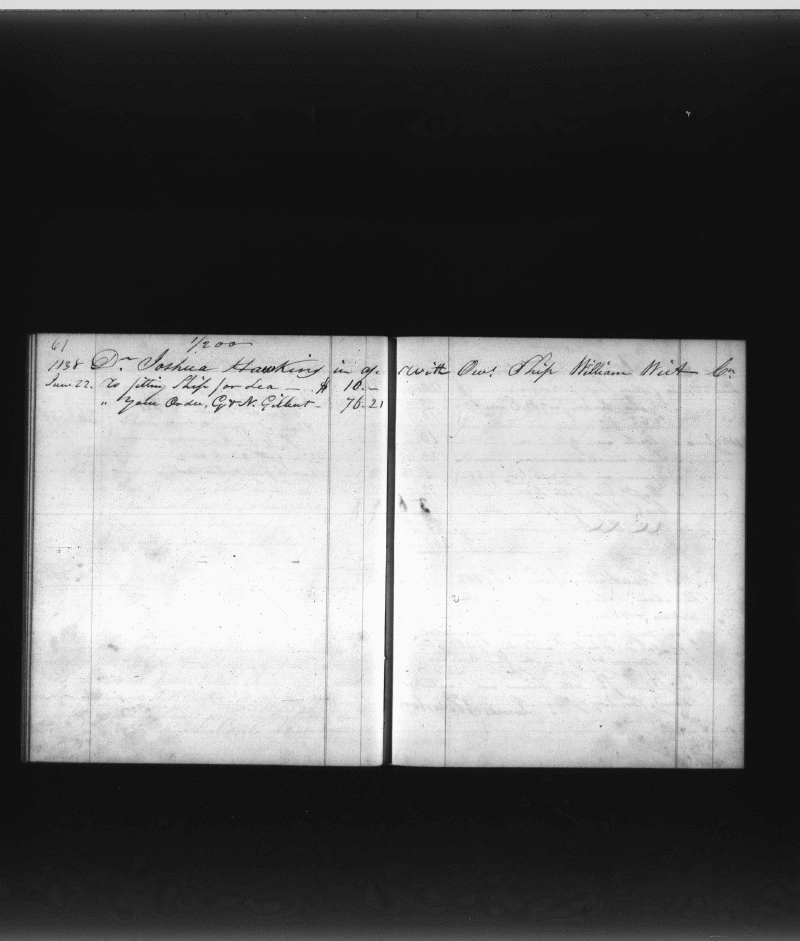 61
1/200
1838 Dr Joshua Hawkins in a/c with Ows. Ship William Wirt Cr.
June 22. To fitting Ship for Sea — $ 10. –
" Your Order, G & N. Gilbert – 76. 21